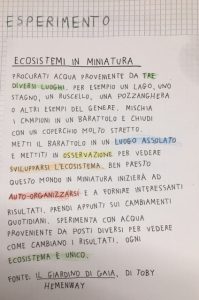 ESPERIMENTO
ECOSISTEMI IN MINIATURA
PROCURATI ACQUA PROVENIENTE DA TRE
DIVERSI LUOGHI. PER ESEMPIO UN LAGO, UNO
STAGNO, UN RUSCELLO, UNA POZZANGHERA
O ALTRI ESEMPI DEL GENERE, MISCHIA
I CAMPIONI IN UN BARATTOLO E CHIUDI
CON UN COPERCHIO MOLTO STRETTO.
METTI IL BARATTOLO IN UN LUOGO ASSOLATO
E METTITI IN OSSERVAZIONE PER VEDERE
SVILUPPARSI L'ECOSISTEMA. BEN PRESTO
QUESTO MONDO IN MINIATURA INIZIERÀ AD
AUTO-ORGANIZZARSI E A FORNIRE INTERESSANTI
RISULTATI, PRENDI APPUNTI SUI CAMBIAMENTI
QUOTIDIANI, SPERIMENTA CON ACQUA
PROVENIENTE DA POSTI DIVERSI PER VEDERE
COME CAMBIANO I RISULTATI. OGNI
ECOSISTEMA È UNICO.
FONTE: IL GIARDINO DI GAIA, DI TOBY
HEMENWAY